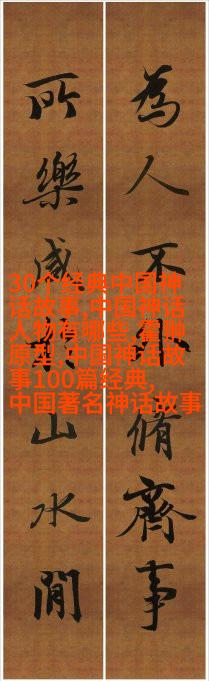 為人不外脩齊事
所樂咸山水間
30个经典中国神
话故事,中国神话
人物有哪些,
原型,中国神话故
事100篇经典,
中国著名神话故事